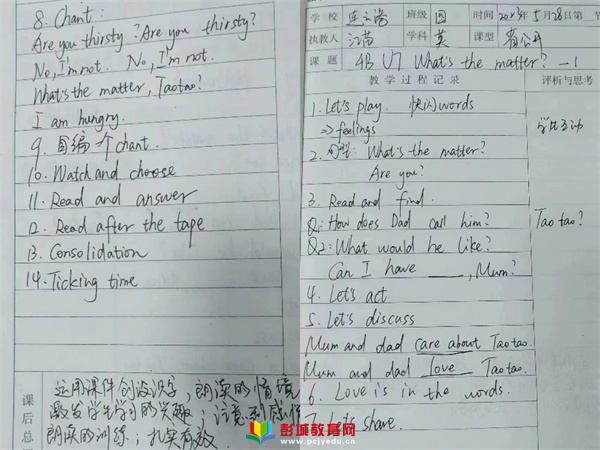 8. Chant:
Are you thirsty? Are you thirsty?
No, I'm not. No, I'm not.
What's the matter, Taotao?
I am hungry.
9. 自编个chant.
10. Watch and choose
11. Read and answer
12. Read after the tape
13. Consolidation
14. Ticking time
课后总
运用课件创设识字,朗读的情境
激发学生学习的兴趣;注意到感情
朗读的训练;扎实有效.
学校 班级 四 时间 2023年5月28日第 节
执教人 江苗 学科 英 课型 省公开
课题 4B U7 What's the matter? -1
教学过程记录 评析与思考
1. Let's play. 快闪words
→ feelings
学生互动
2. 句型: What's the matter?
Are you?
3. Read and find.
Q1: How does Dad call him? Taotao?
Q2: What would he like?
Can I have ____, Mum?
4. Let's act
5. Let's discuss
Mum and dad care about Taotao.
Mum and dad love Taotao.
6. Love is in the words.
7. Let's share.
彭城教育网
www.pcjyedu.cn